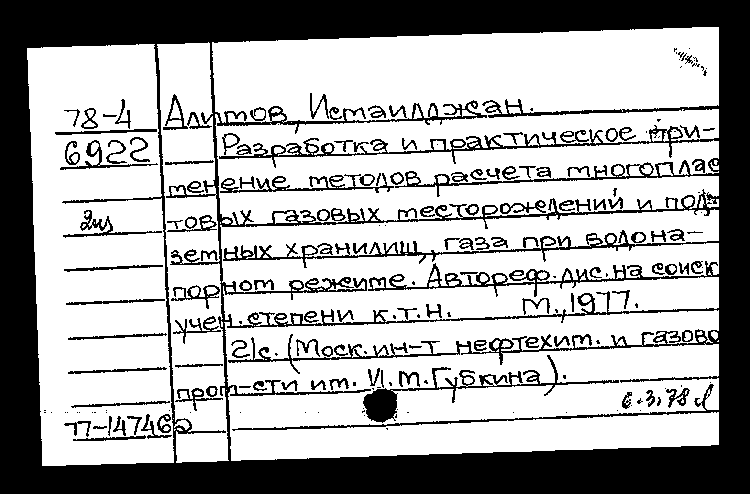 78-4 Алимов, Исмаилджан.
6922 Разработка и практическое при-
менение методов расчета многоплас
2из товых газовых месторождений и под-
земных хранилищ, газа при водона-
порном режиме. Автореф. дис. на соиск
учен. степени к.т.н. М., 1977.
21с. (Моск. ин-т нефтехим. и газово
пром-сти им. И.М.Губкина).
6.3.78
П-14746